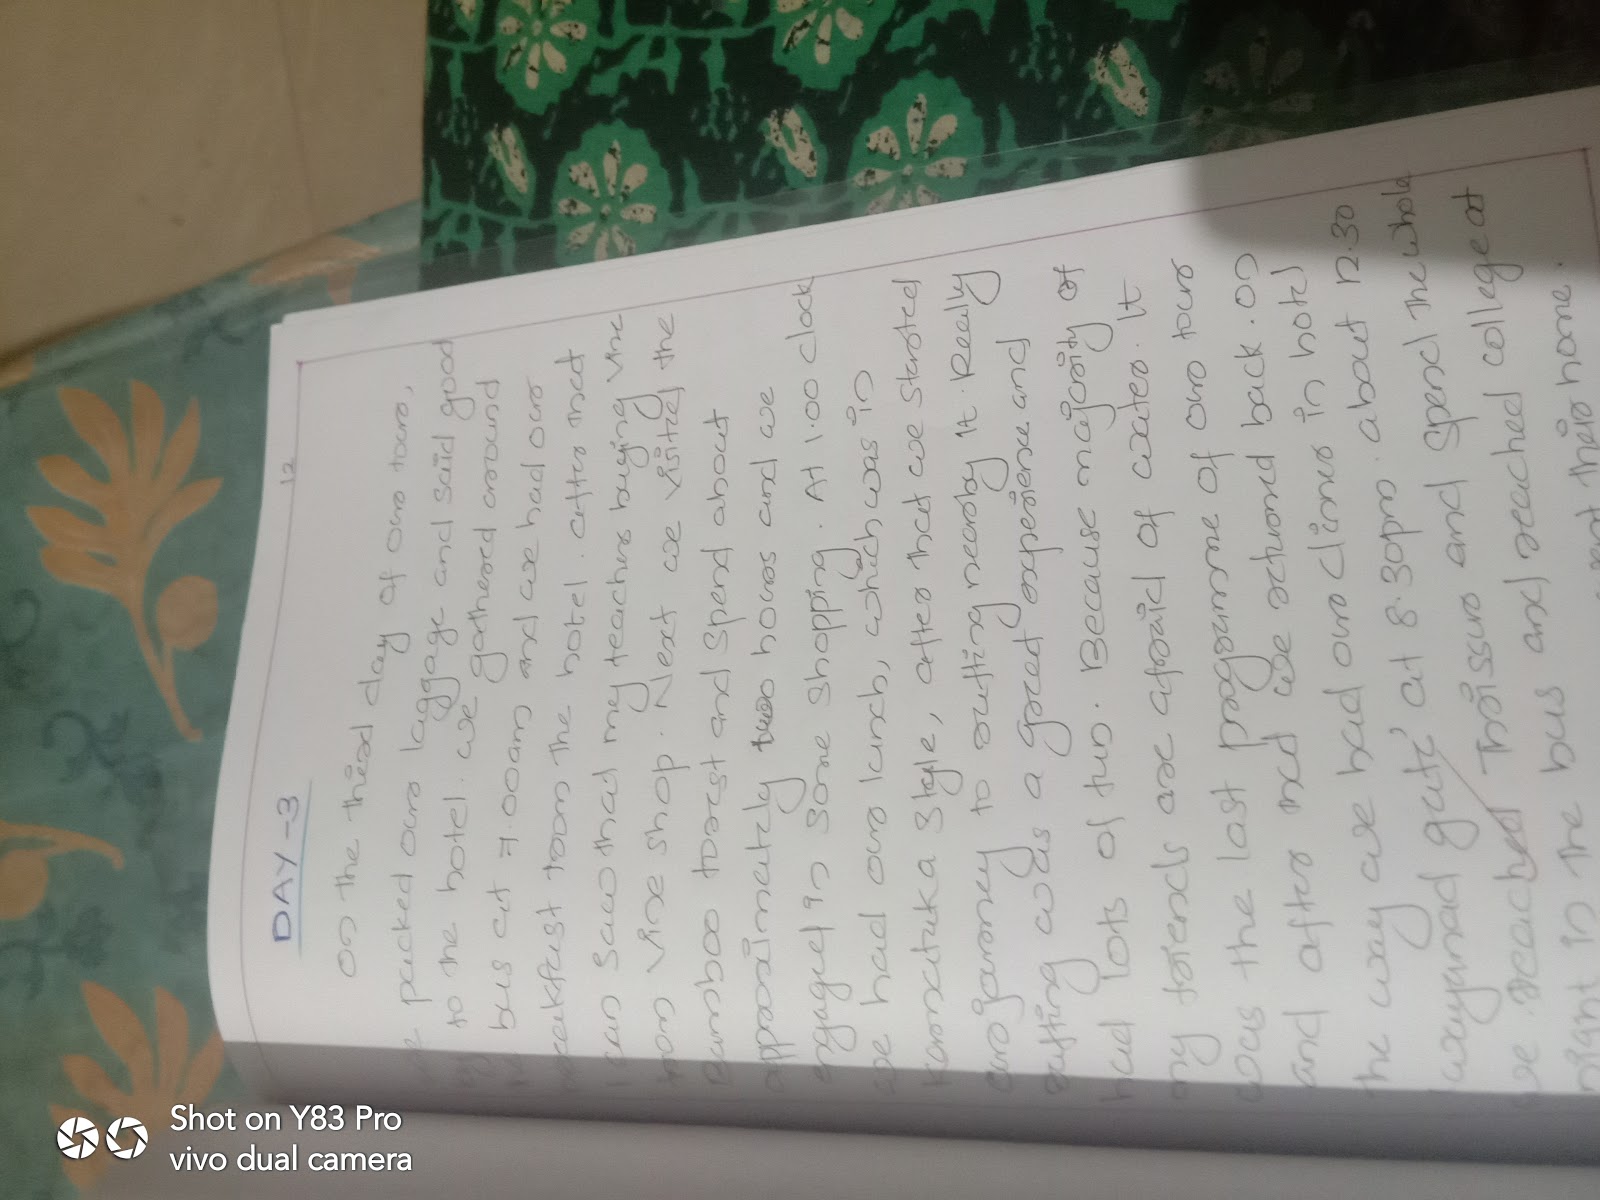 12
DAY-3
On the third day of our tour,
we packed our luggage and said good
bye to the hotel. we gathered around
bus at 7.00am and we had our
breakfast from the hotel. after that
I can saw that my teachers buying vine
from vine shop. Next we visited the
Bamboo forest and spend about
approximately two hours and we
engaged in some shopping. At 1.00 clock
we had our lunch, which was in
Karnataka style, after that we started
our journey to rafting nearby it. Really
rafting was a great experience and
had lots of fun. Because majority of
my friends are afraid of water. It
was the last programme of our tour
and after that we returned back. on
the way we had our dinner in hotel
'wayanad gate' at 8.30pm. about 12.30
we reached Thrissur and spend the whole
night in the bus and reached college at
their home.
Shot on Y83 Pro
vivo dual camera